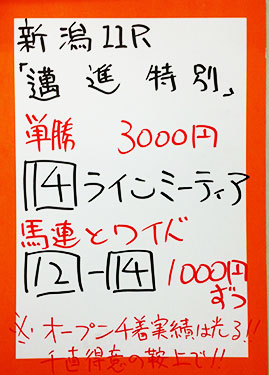 新潟11R
「邁進特別」
単勝 3000円
14 ラインミーティア
馬連とワイド
12-14 1000円
ずつ
※オープン4着実績は光る!!
千直得意の鞍上で!!